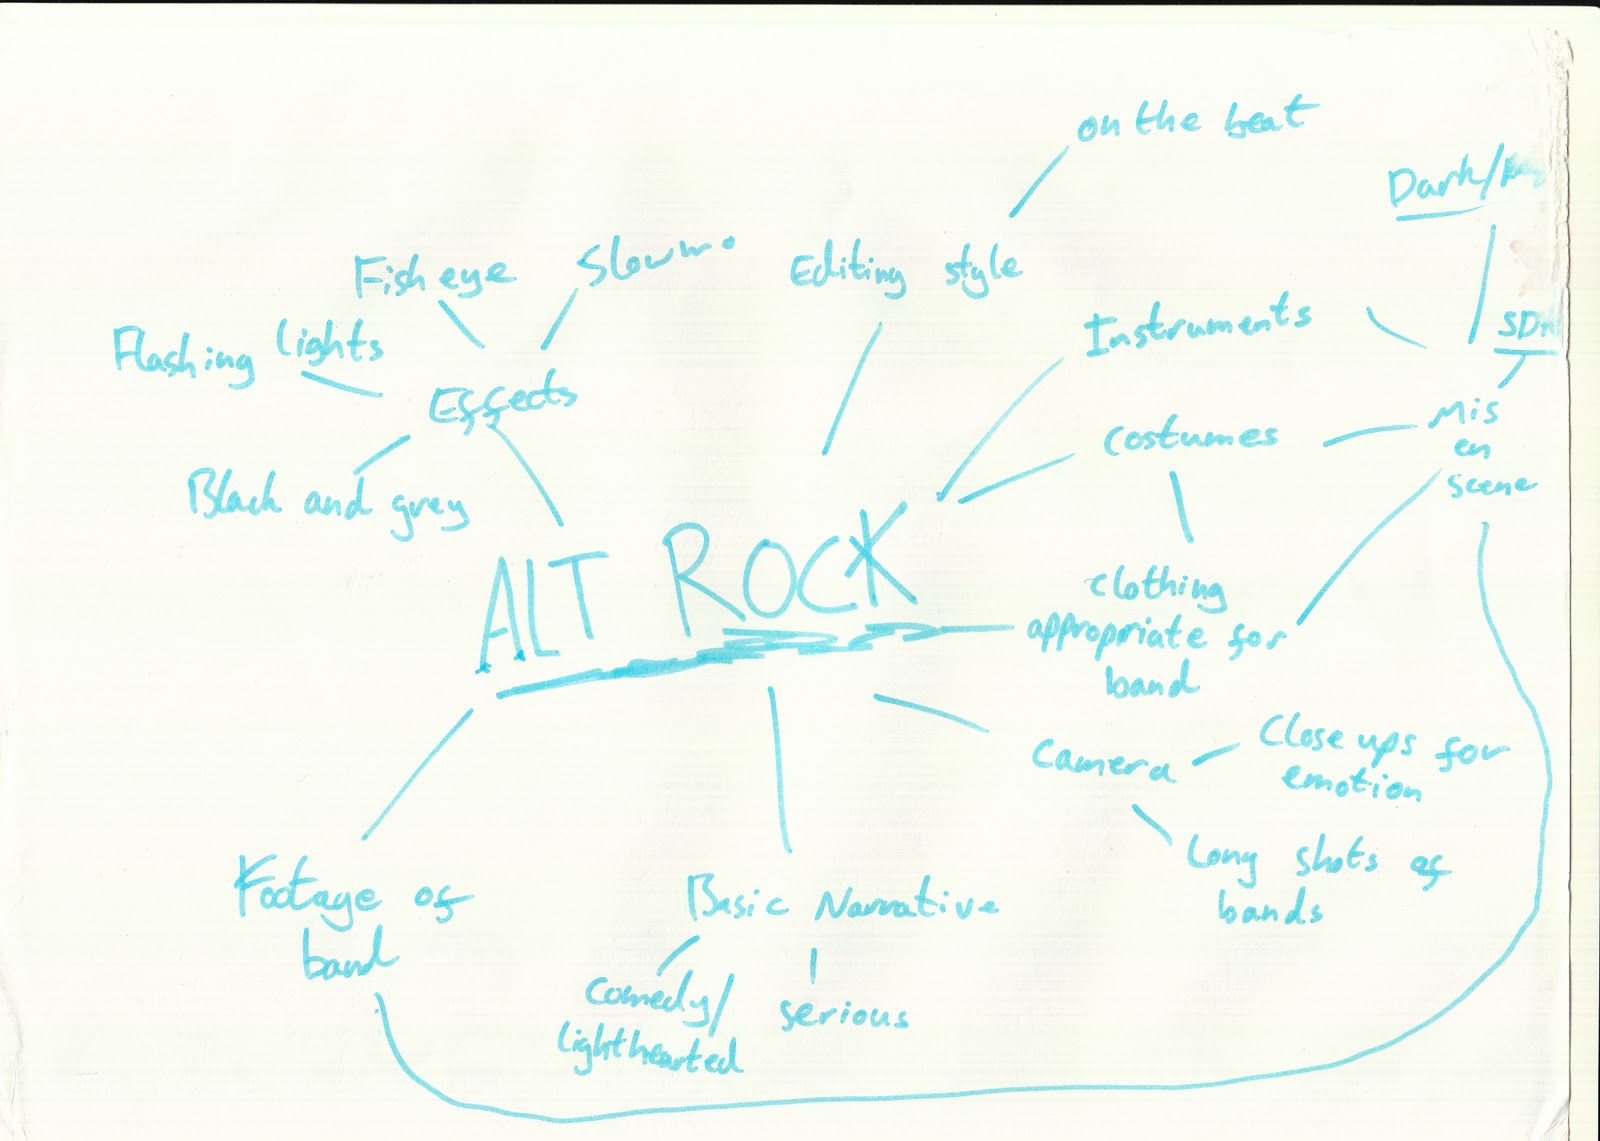 on the beat
Dark/
Fisheye
Slowmo
Editing style
Flashing lights
Instruments
Effects
Costumes
Mis
en
scene
Black and grey
ALT ROCK
clothing
appropriate for
band
Camera
Close ups for
emotion
Long shots of
bands
Footage of
band
Basic Narrative
Comedy/
lighthearted
serious